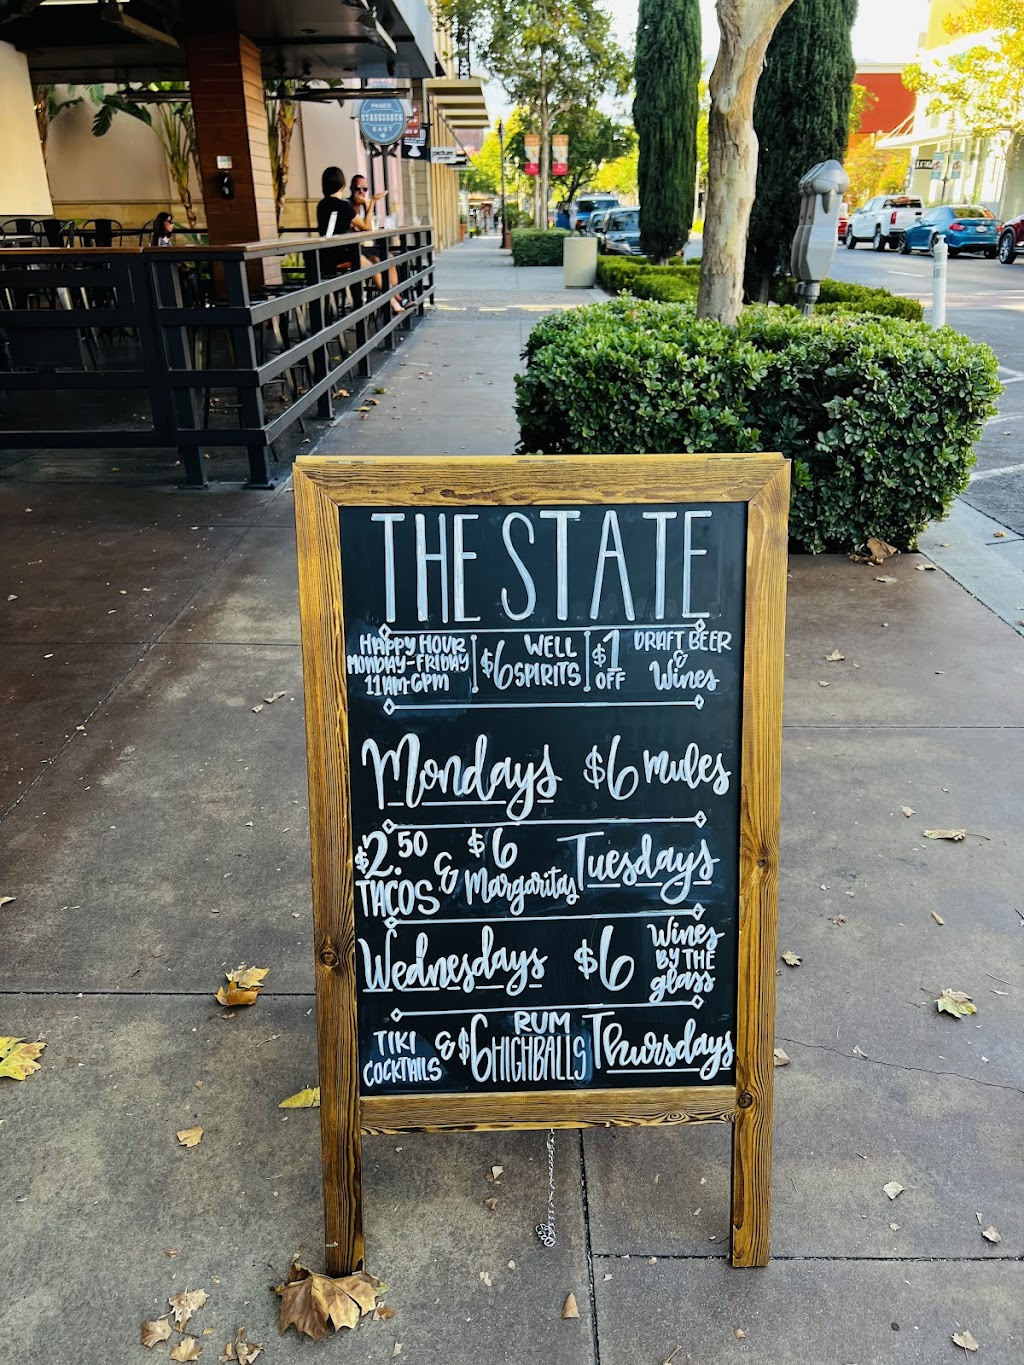 PASEO
STAGECOACH
EAST
THE STATE
HAPPY HOUR
MONDAY-FRIDAY
11AM-6PM
$6 WELL SPIRITS
$1 OFF
DRAFT BEER
&
Wines
Mondays $6 mules
$2.50 TACOS & $6 Margaritas Tuesdays
Wednesdays $6 Wines BY THE glass
TIKI COCKTAILS & $6 RUM HIGHBALLS Thursdays